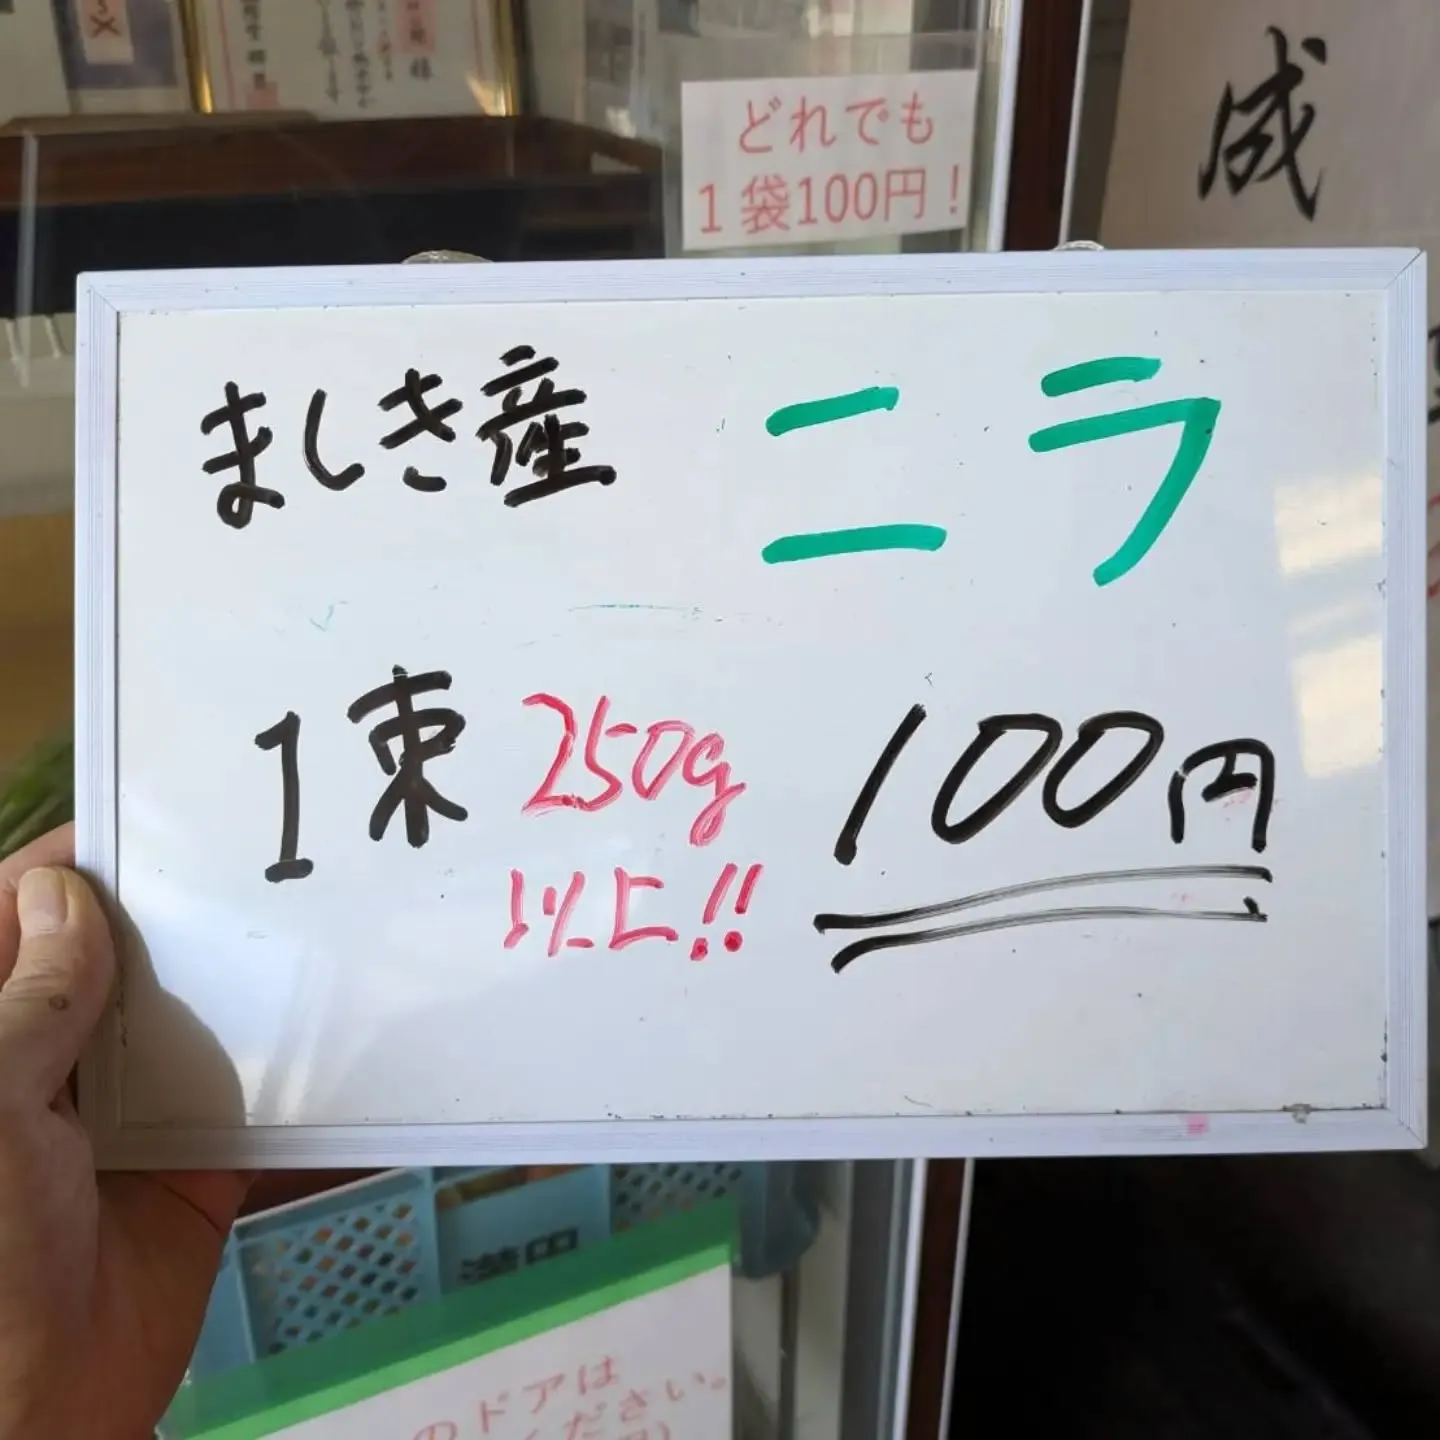 どれでも
1袋100円！
成
ましき産 ニラ
1束 250g 100円
以上!!
のドアは
ください。